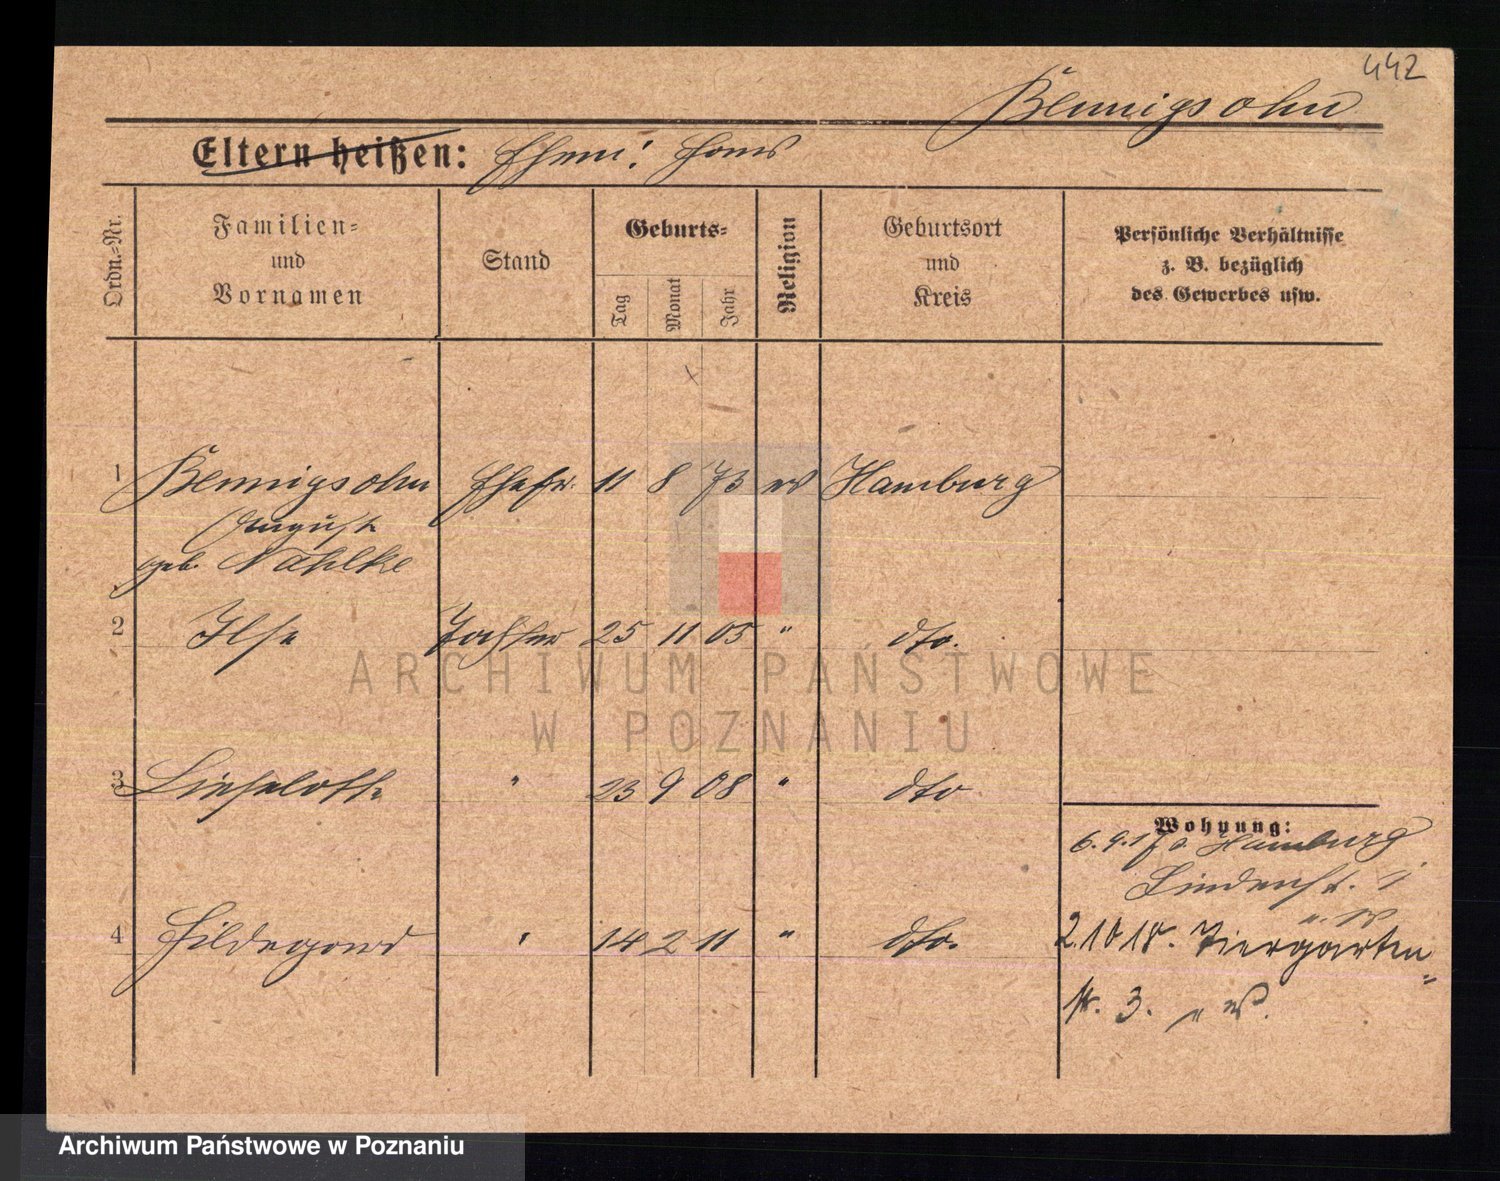 442
Bennigsohn
Eltern heißen: Ehem: Hans
Ordn.=Nr.
Familien=
und
Vornamen
Stand
Geburts=
Tag
Monat
Jahr
Religion
Geburtsort
und
Kreis
Persönliche Verhältnisse
z. B. bezüglich
des Gewerbes usw.
1 Bennigsohn Ehefr. 11 8 73 ev Hamburg
August
geb. Nahlke
2 Ilse Tochter 25 11 05 " dto.
3 Lieselotte " 23 9 08 " dto
4 Hildegard " 14 2 11 " dto.
Wohnung:
6. 9. 17 a. Hamburg
Lindenst. 1
2.10 18. Tiergarten=
str. 3.
ARCHIWUM PAŃSTWOWE
W POZNANIU
Archiwum Państwowe w Poznaniu